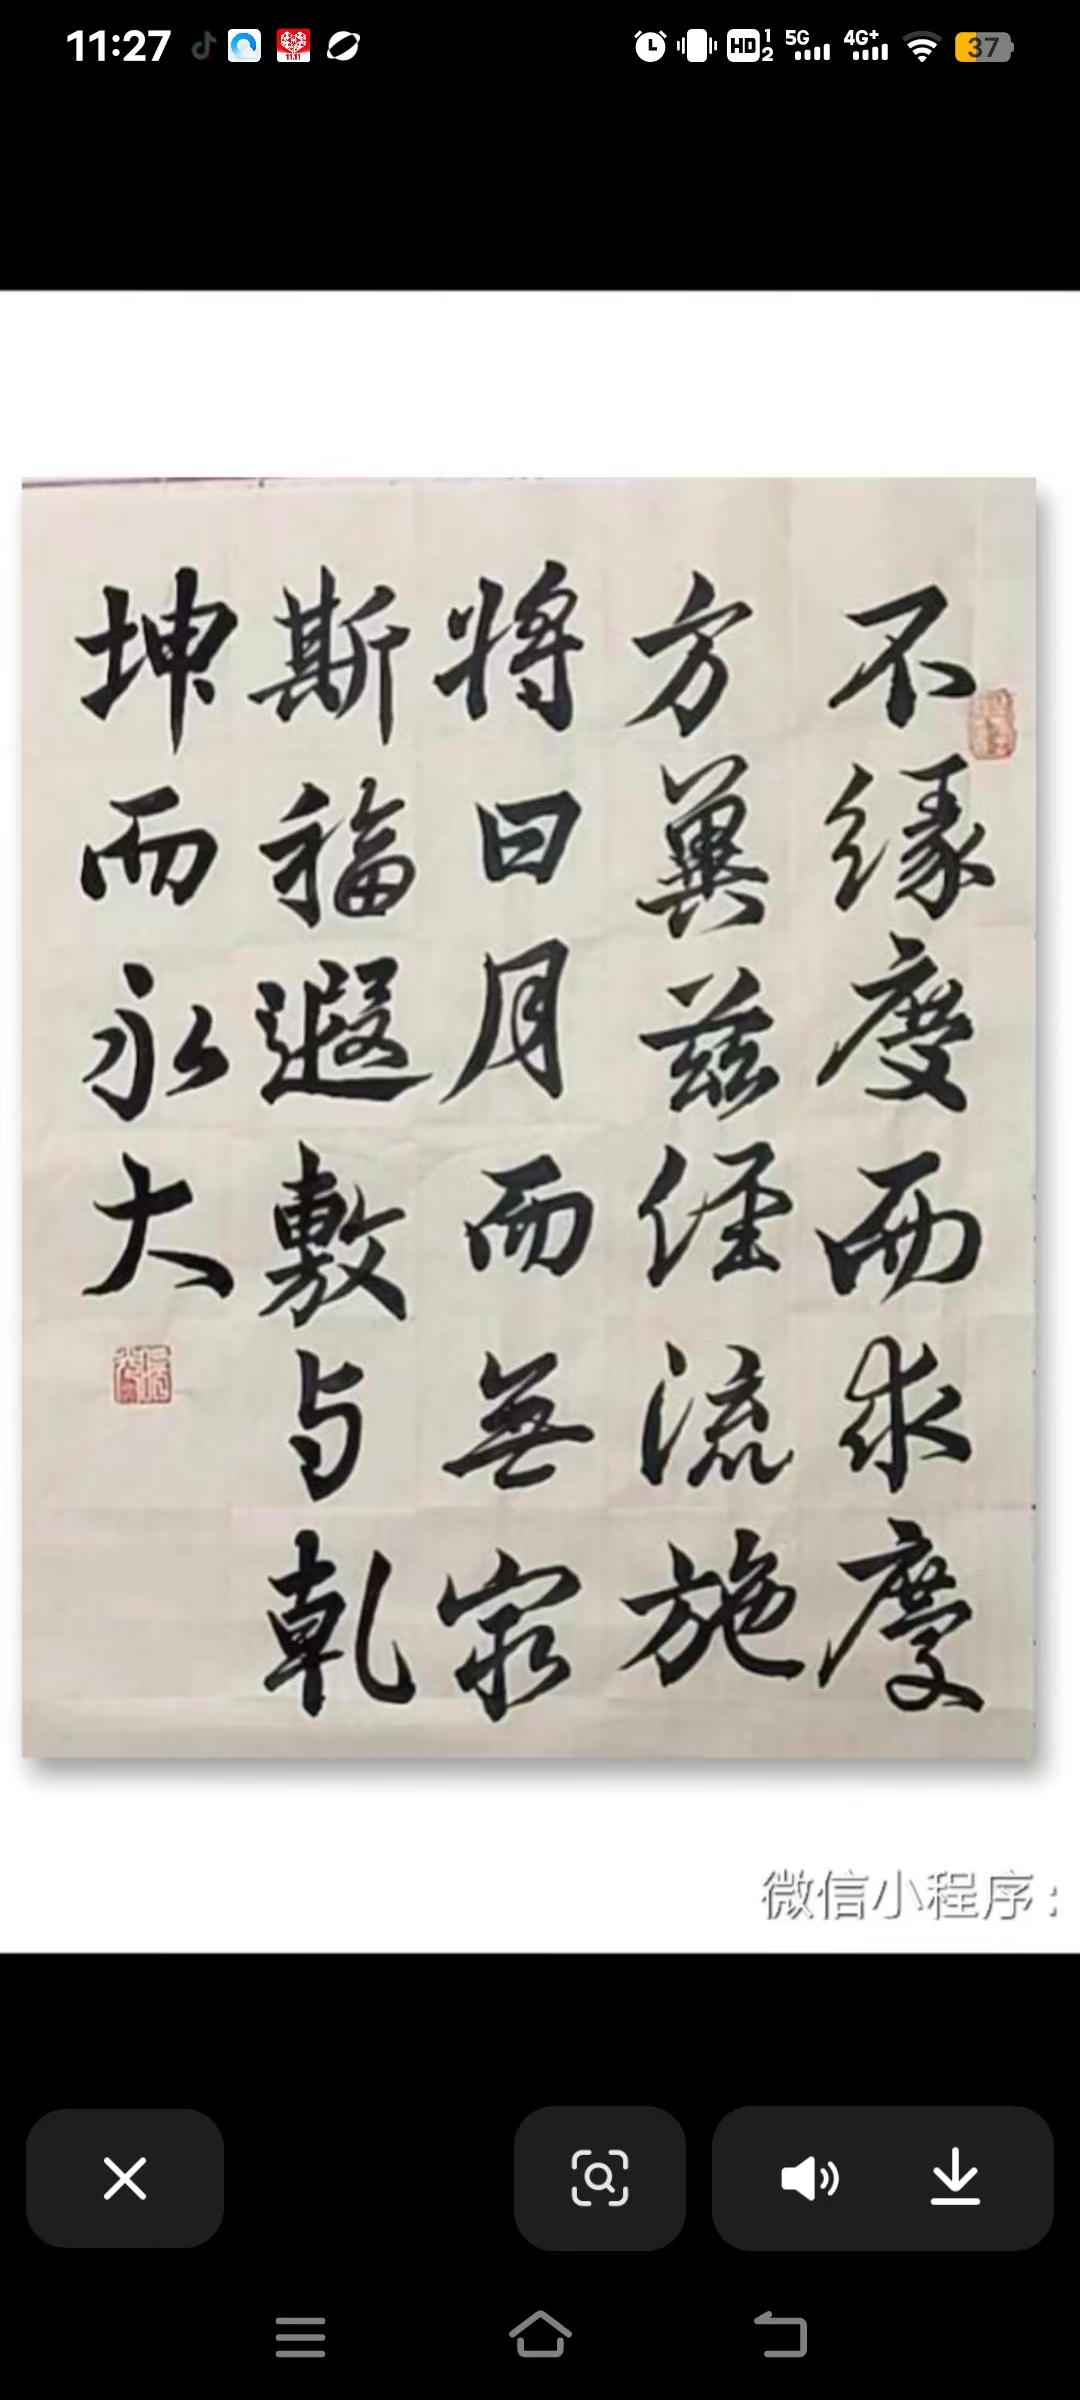 11:27
HD 1 2 5G 4G+ 37
不缘度而求度
方冀兹經流施
將日月而無窮
斯福遐敷与乾
坤而永大
微信小程序: